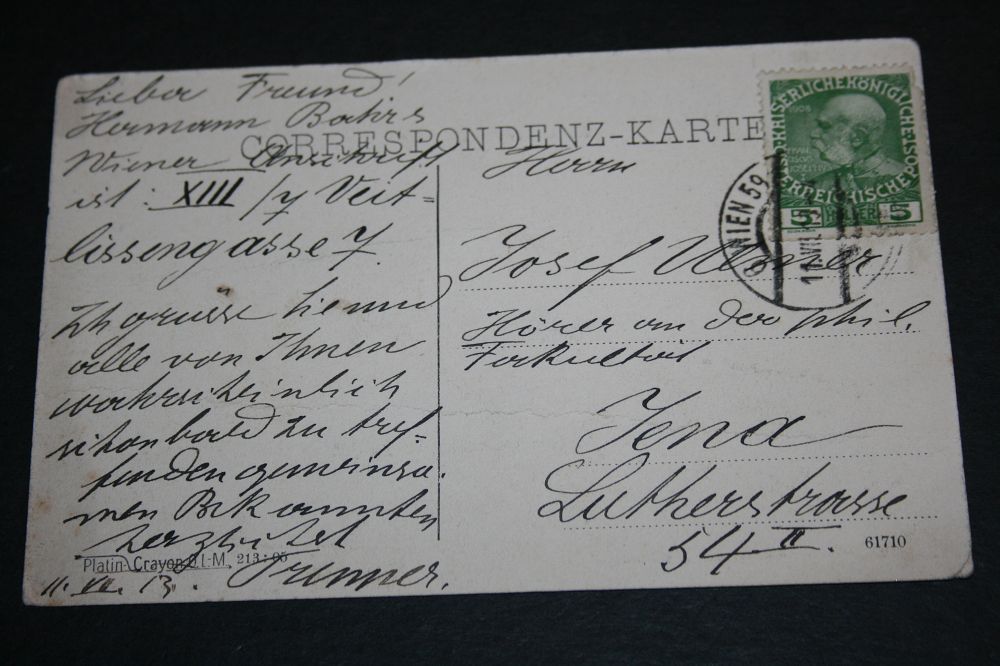 Lieber Freund!
Hermann Bahrs
Wiener Anschrift
ist: XIII/7 Veit-
lissengasse 7.
Ich grüsse Sie und
alle von Ihnen
wahrscheinlich
schon bald zu tref-
fenden gemeinsa-
men Bekannten
herzlichst
11. VII. 13.
CORRESPONDENZ-KARTE
Herrn
Josef
Hörer an der phil.
Fakultät
Jena
Lutherstrasse
54 II.
Platin-Crayon D.L-M. 213:05
61710
KAISERLICHE KÖNIGLICHE
ÖSTERREICHISCHE POST
1908
5 HELLER 5
WIEN 59